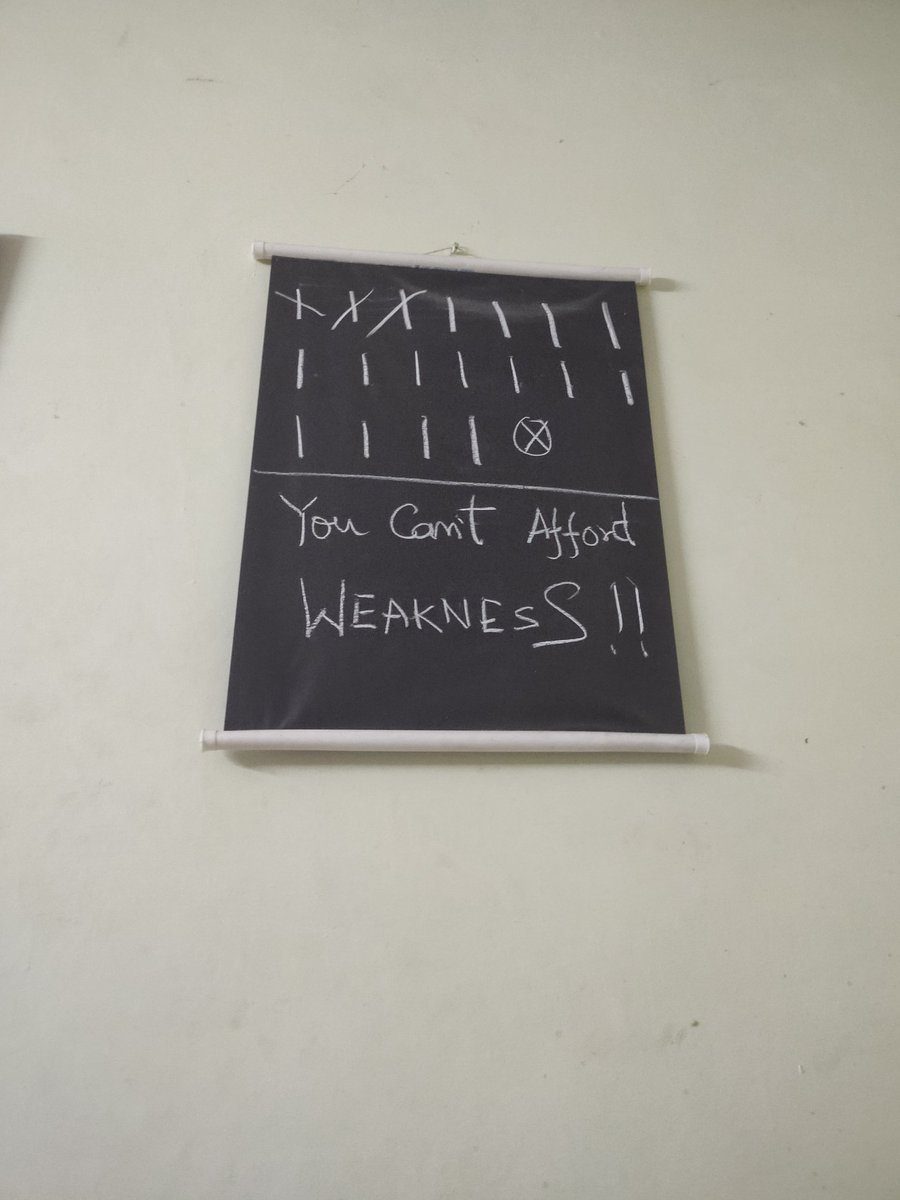 X X X | | | |
| | | | | | |
| | | | ⊗
You Can't Afford
WEAKNESS!!